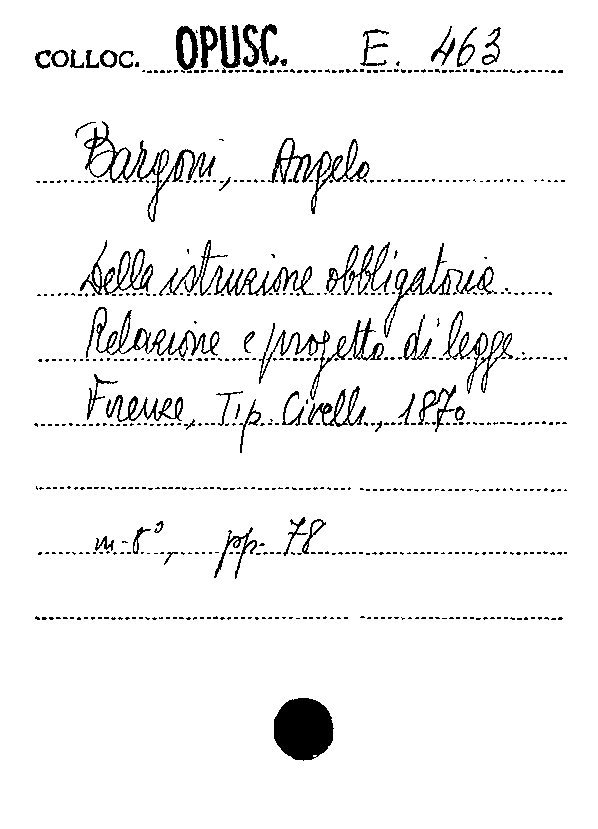 COLLOC. OPUSC. E. 463
Bargoni, Angelo
Della istruzione obbligatoria.
Relazione e progetto di legge.
Firenze, Tip. Civelli, 1870
in-8°, pp. 78